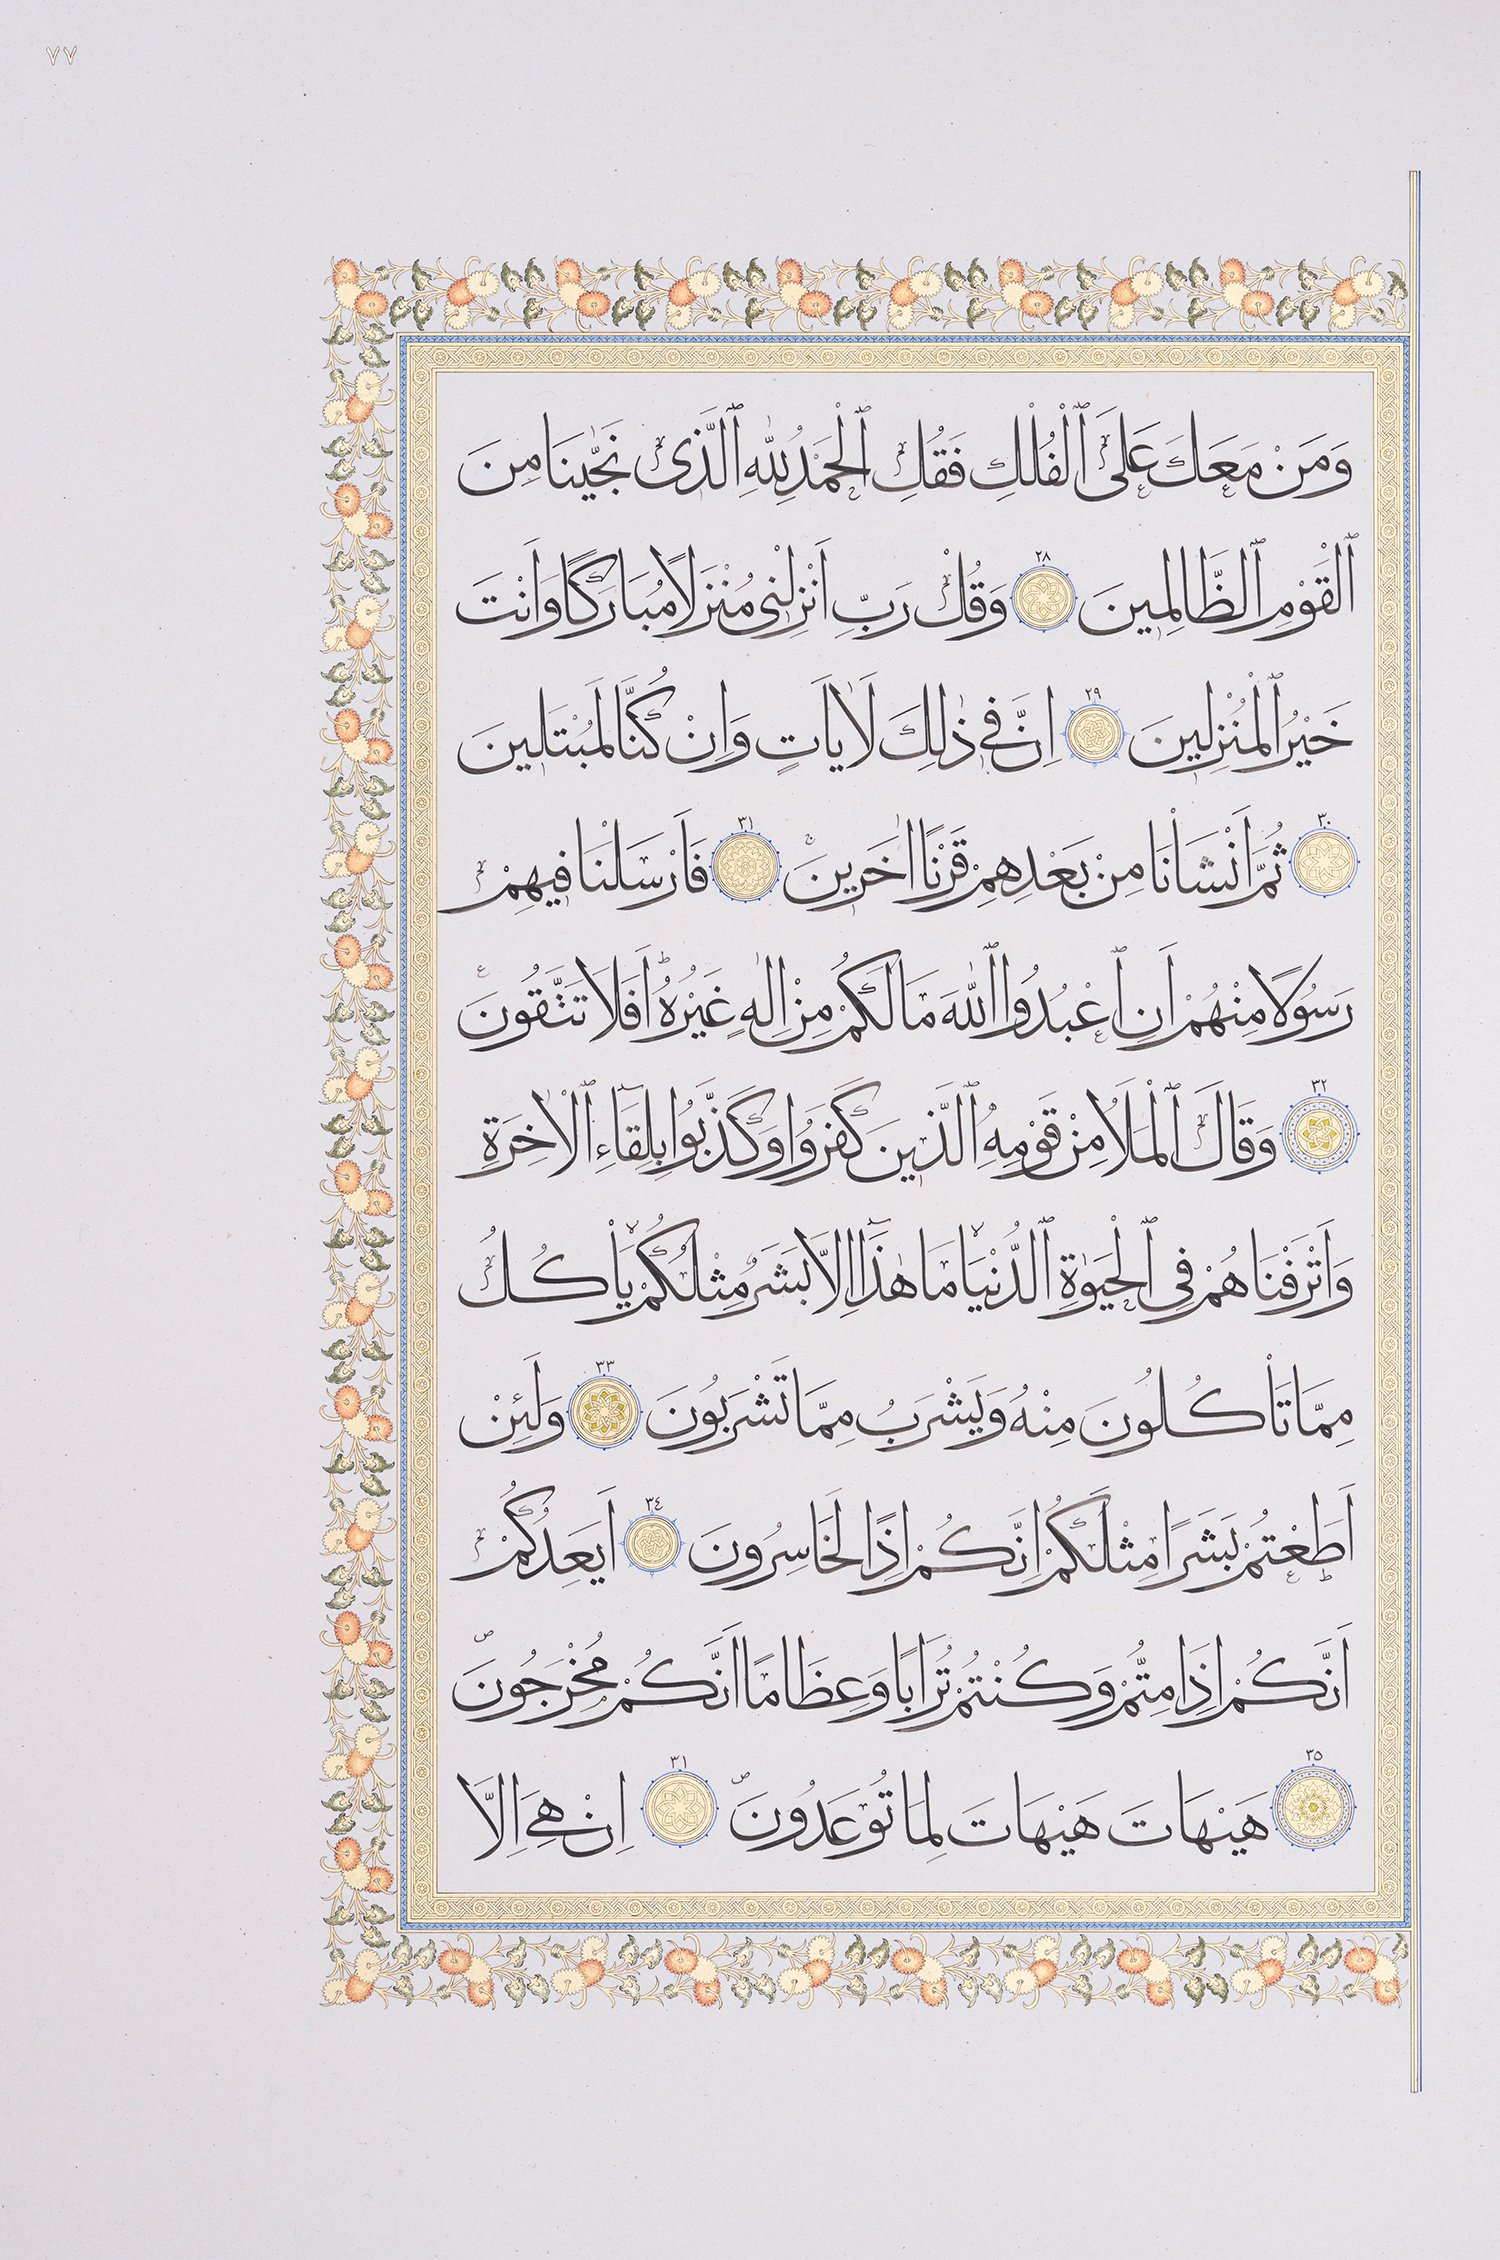 ٧٧
وَمَنْ مَعَكَ عَلَى ٱلْفُلْكِ فَقُلِ ٱلْحَمْدُ لِلّٰهِ ٱلَّذى نَجّٰينَا مِنَ
ٱلْقَوْمِ ٱلظَّالِمينَ ٢٨ وَقُلْ رَبِّ اَنْزِلْنى مُنْزَلًا مُبَارَكًا وَاَنْتَ
خَيْرُ ٱلْمُنْزِلينَ ٢٩ اِنَّ فى ذٰلِكَ لَاٰيَاتٍ وَاِنْ كُنَّا لَمُبْتَلينَ
٣٠ ثُمَّ اَنْشَأْنَا مِنْ بَعْدِهِمْ قَرْنًا اٰخَرينَ ٣١ فَاَرْسَلْنَا فيهِمْ
رَسُولًا مِنْهُمْ اَنِ ٱعْبُدُوا ٱللّٰهَ مَا لَكُمْ مِنْ اِلٰهٍ غَيْرُهُ اَفَلَا تَتَّقُونَ
٣٢ وَقَالَ ٱلْمَلَاُ مِنْ قَوْمِهِ ٱلَّذينَ كَفَرُوا وَكَذَّبُوا بِلِقَٓاءِ ٱلْاٰخِرَةِ
وَاَتْرَفْنَاهُمْ فِى ٱلْحَيٰوةِ ٱلدُّنْيَا مَا هٰذَٓا اِلَّا بَشَرٌ مِثْلُكُمْ يَأْكُلُ
مِمَّا تَأْكُلُونَ مِنْهُ وَيَشْرَبُ مِمَّا تَشْرَبُونَ ٣٣ وَلَئِنْ
اَطَعْتُمْ بَشَرًا مِثْلَكُمْ اِنَّكُمْ اِذًا لَخَاسِرُونَ ٣٤ اَيَعِدُكُمْ
اَنَّكُمْ اِذَا مِتُّمْ وَكُنْتُمْ تُرَابًا وَعِظَامًا اَنَّكُمْ مُخْرَجُونَ
٣٥ هَيْهَاتَ هَيْهَاتَ لِمَا تُوعَدُونَ ٣١ اِنْ هِىَ اِلَّا